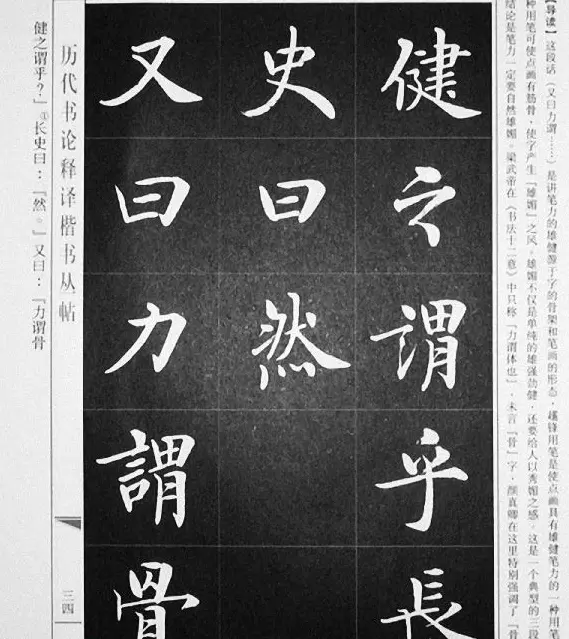 【导读】这段话（又曰力谓……）是讲笔力的雄健源于字的骨架和笔画的形态，趯锋用笔是使点画具有雄健笔力的一种用笔
种用笔可使点画有筋骨，使字产生『雄媚』之风，雄媚不仅是单纯的雄强劲健，还要给人以秀媚之感。这是一个典型的三段
结论是笔力一定要自然雄媚。梁武帝在《书法十二意》中只称『力谓体也』，未言『骨』字，颜真卿在这里特别强调了『骨
健之謂乎長
史曰然
又曰力謂骨
历代书论释译楷书丛帖
三四
健之谓乎？』①长史曰：『然。』又曰：『力谓骨